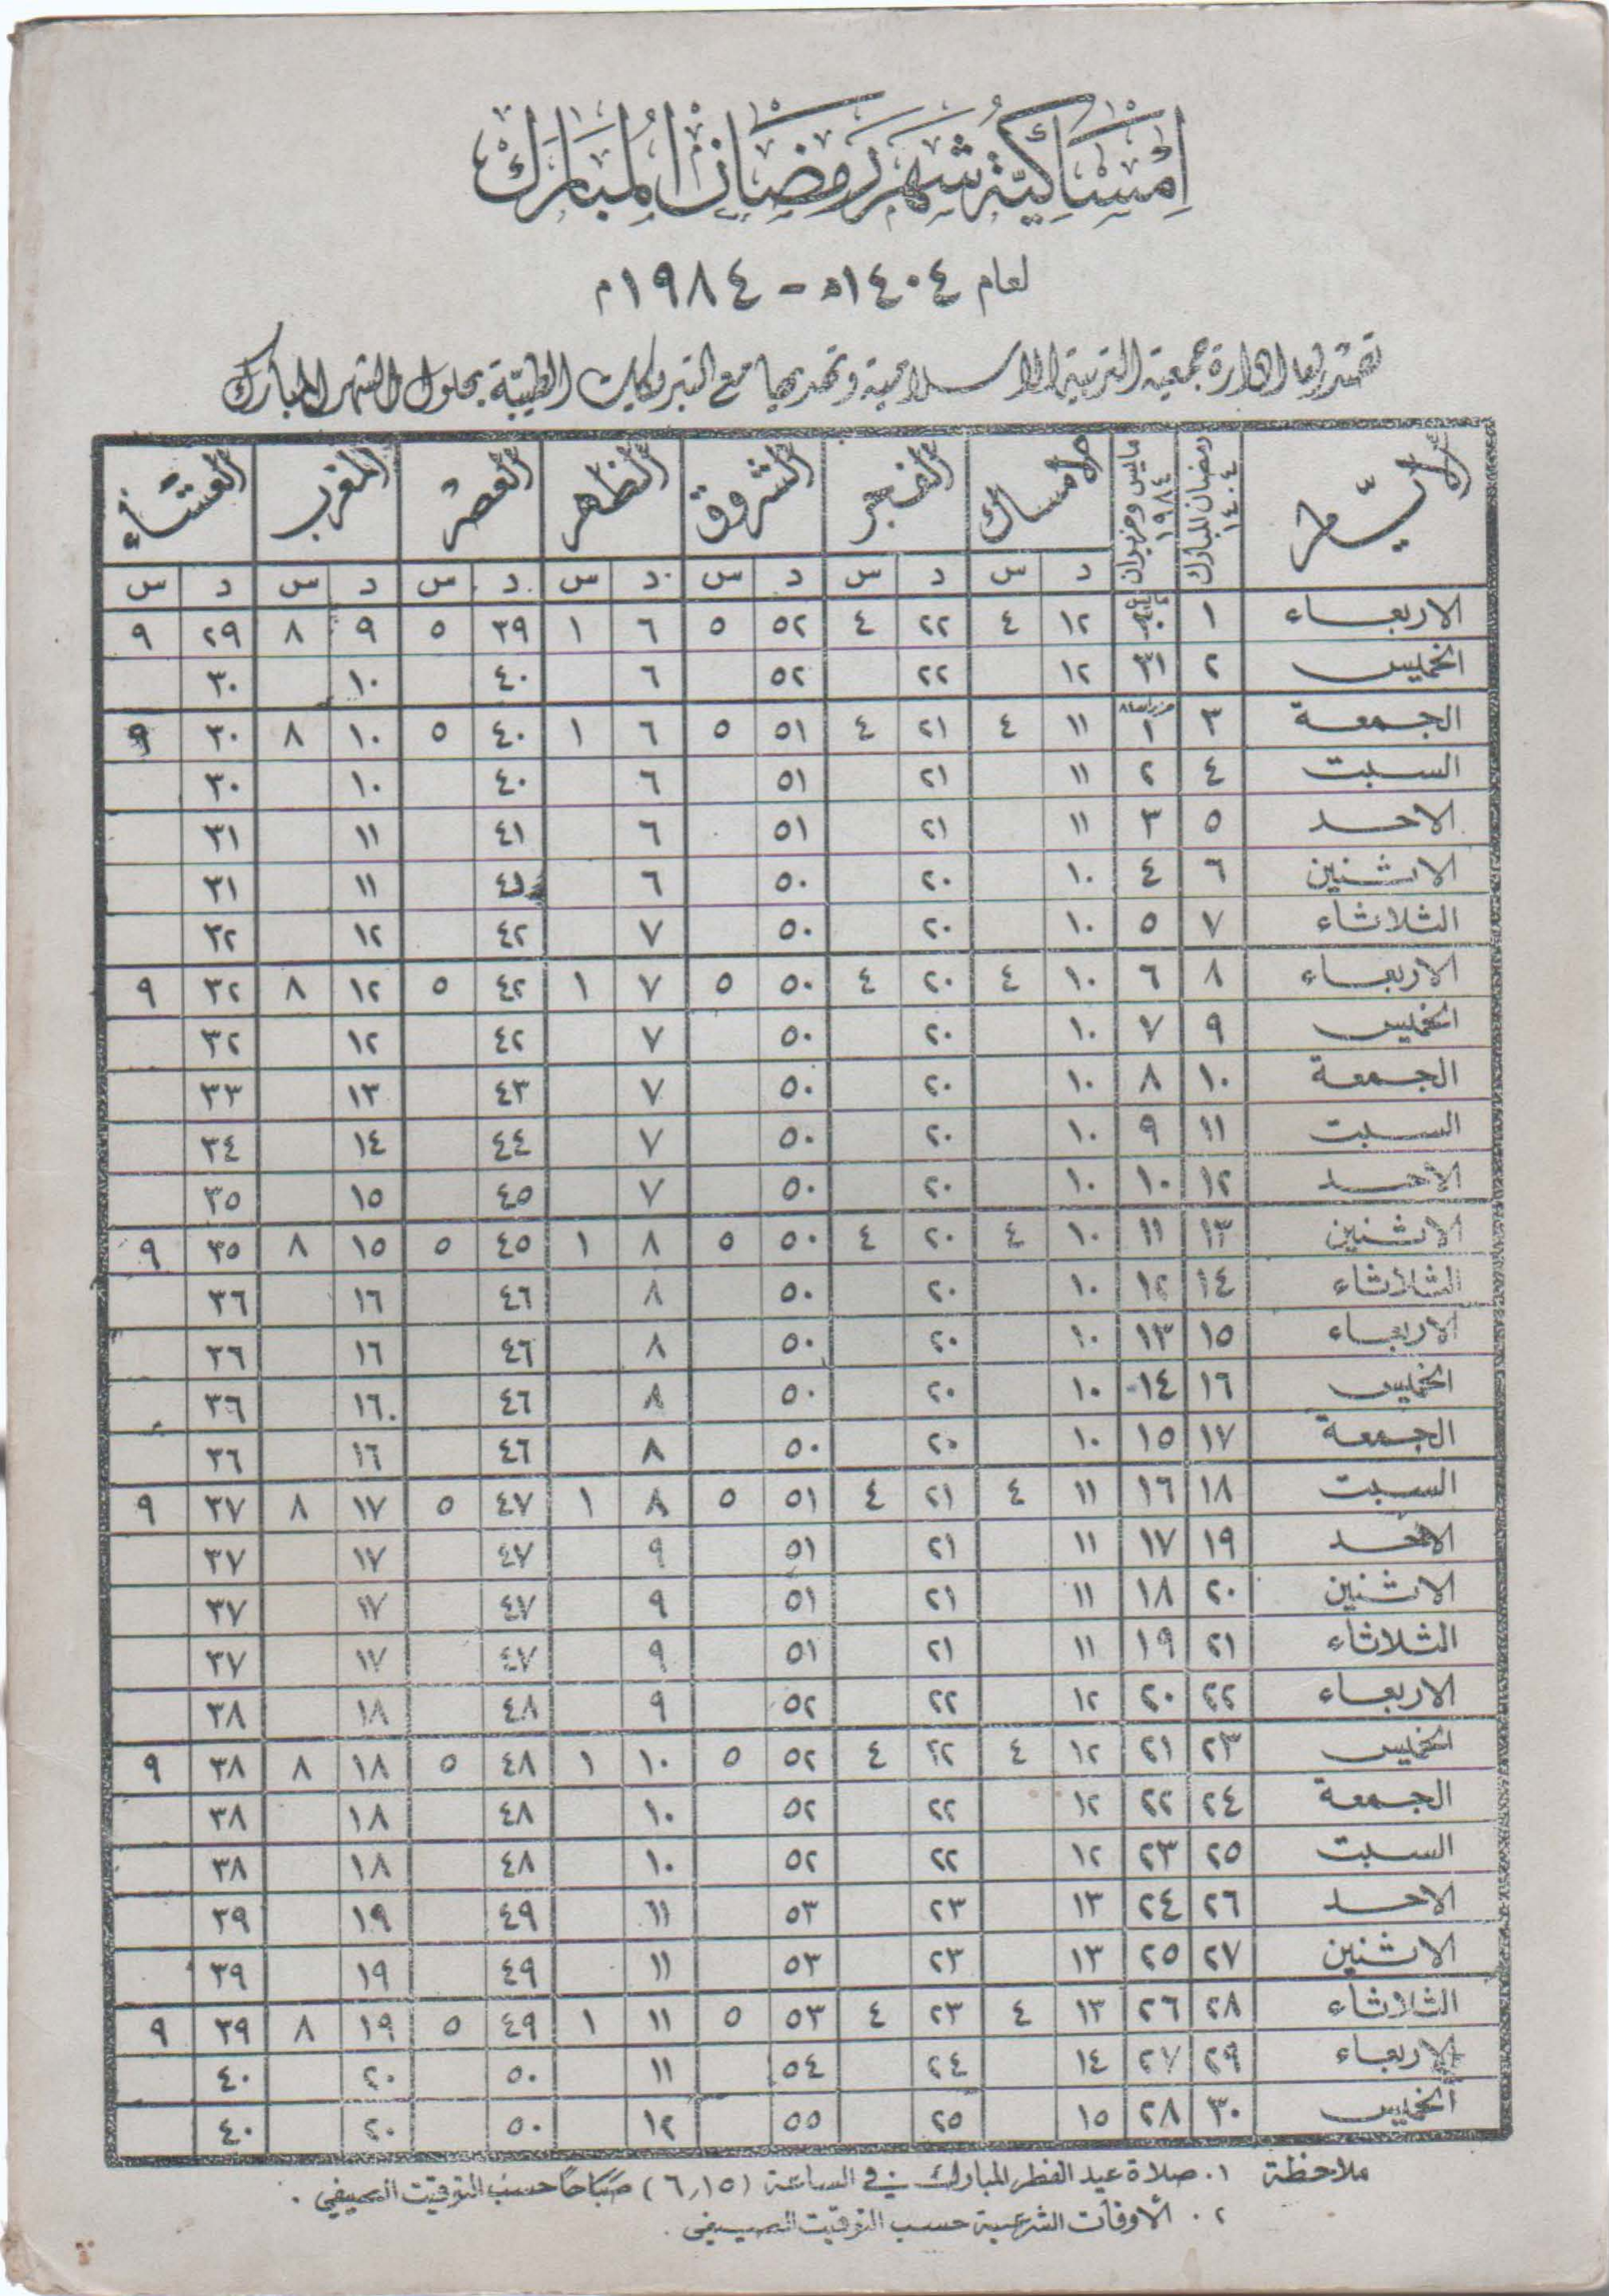 إمساكية شهر رمضان المبارك
لعام ١٤٠٤ه - ١٩٨٤م
تصدرها ادارة جمعية التربية الاسلامية وتهديها مع التبريكات الطيبة بحلول الشهر المبارك
الايام رمضان المبارك ١٤٠٤ مايس وحزيران ١٩٨٤ الامساك الفجر الشروق الظهر العصر المغرب العشاء
د س د س د س د س د س د س د س
الاربعاء ١ ٣٠ ١٢ ٤ ٢٢ ٤ ٥٢ ٥ ٦ ١ ٣٩ ٥ ٩ ٨ ٢٩ ٩
الخميس ٢ ٣١ ١٢ ٢٢ ٥٢ ٦ ٤٠ ١٠ ٣٠
الجمعة ٣ ١ ١١ ٤ ٢١ ٤ ٥١ ٥ ٦ ١ ٤٠ ٥ ١٠ ٨ ٣٠ ٩
السبت ٤ ٢ ١١ ٢١ ٥١ ٦ ٤٠ ١٠ ٣٠
الاحد ٥ ٣ ١١ ٢١ ٥١ ٦ ٤١ ١١ ٣١
الاثنين ٦ ٤ ١٠ ٢٠ ٥٠ ٦ ٤١ ١١ ٣١
الثلاثاء ٧ ٥ ١٠ ٢٠ ٥٠ ٧ ٤٢ ١٢ ٣٢
الاربعاء ٨ ٦ ١٠ ٤ ٢٠ ٤ ٥٠ ٥ ٧ ١ ٤٢ ٥ ١٢ ٨ ٣٢ ٩
الخميس ٩ ٧ ١٠ ٢٠ ٥٠ ٧ ٤٢ ١٢ ٣٢
الجمعة ١٠ ٨ ١٠ ٢٠ ٥٠ ٧ ٤٣ ١٣ ٣٣
السبت ١١ ٩ ١٠ ٢٠ ٥٠ ٧ ٤٤ ١٤ ٣٤
الأحد ١٢ ١٠ ١٠ ٢٠ ٥٠ ٧ ٤٥ ١٥ ٣٥
الاثنين ١٣ ١١ ١٠ ٤ ٢٠ ٤ ٥٠ ٥ ٨ ١ ٤٥ ٥ ١٥ ٨ ٣٥ ٩
الثلاثاء ١٤ ١٢ ١٠ ٢٠ ٥٠ ٨ ٤٦ ١٦ ٣٦
الاربعاء ١٥ ١٣ ١٠ ٢٠ ٥٠ ٨ ٤٦ ١٦ ٣٦
الخميس ١٦ ١٤ ١٠ ٢٠ ٥٠ ٨ ٤٦ ١٦ ٣٦
الجمعة ١٧ ١٥ ١٠ ٢٠ ٥٠ ٨ ٤٦ ١٦ ٣٦
السبت ١٨ ١٦ ١١ ٤ ٢١ ٤ ٥١ ٥ ٨ ١ ٤٧ ٥ ١٧ ٨ ٣٧ ٩
الاحد ١٩ ١٧ ١١ ٢١ ٥١ ٩ ٤٧ ١٧ ٣٧
الاثنين ٢٠ ١٨ ١١ ٢١ ٥١ ٩ ٤٧ ١٧ ٣٧
الثلاثاء ٢١ ١٩ ١١ ٢١ ٥١ ٩ ٤٧ ١٧ ٣٧
الاربعاء ٢٢ ٢٠ ١٢ ٢٢ ٥٢ ٩ ٤٨ ١٨ ٣٨
الخميس ٢٣ ٢١ ١٢ ٤ ٢٢ ٤ ٥٢ ٥ ١٠ ١ ٤٨ ٥ ١٨ ٨ ٣٨ ٩
الجمعة ٢٤ ٢٢ ١٢ ٢٢ ٥٢ ١٠ ٤٨ ١٨ ٣٨
السبت ٢٥ ٢٣ ١٢ ٢٢ ٥٢ ١٠ ٤٨ ١٨ ٣٨
الاحد ٢٦ ٢٤ ١٣ ٢٣ ٥٣ ١١ ٤٩ ١٩ ٣٩
الاثنين ٢٧ ٢٥ ١٣ ٢٣ ٥٣ ١١ ٤٩ ١٩ ٣٩
الثلاثاء ٢٨ ٢٦ ١٣ ٤ ٢٣ ٤ ٥٣ ٥ ١١ ١ ٤٩ ٥ ١٩ ٨ ٣٩ ٩
الاربعاء ٢٩ ٢٧ ١٤ ٢٤ ٥٤ ١١ ٥٠ ٢٠ ٤٠
الخميس ٣٠ ٢٨ ١٥ ٢٥ ٥٥ ١٢ ٥٠ ٢٠ ٤٠
ملاحظة ١. صلاة عيد الفطر المبارك في الساعة (٦,١٥) صباحًا حسب التوقيت الصيفي.
٢. الأوقات الشرعية حسب التوقيت الصيفي.